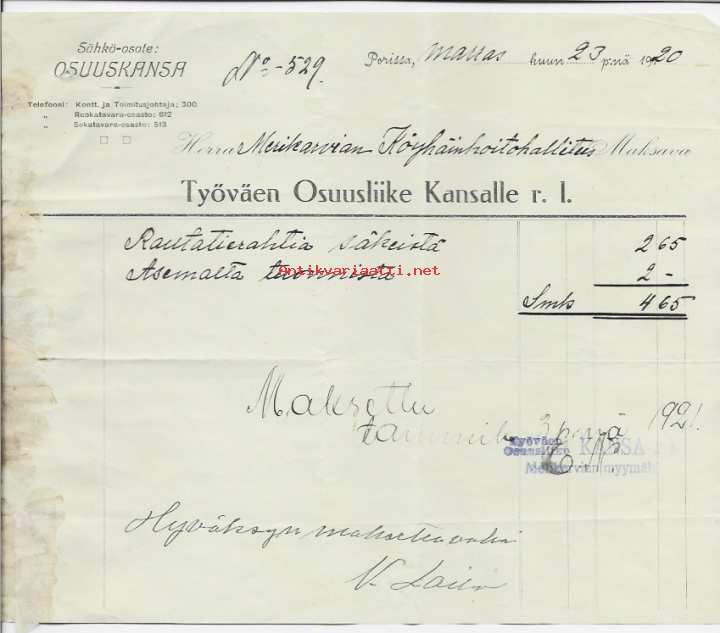 Sähkö-osote:
OSUUSKANSA
Telefooni: Kontt. ja Toimitusjohtaja; 300
„ Ruokatavara-osasto; 612
„ Sekatavara-osasto; 513
No -529.
Porissa, marras kuun 23 p:nä 1920
Herra Merikarvian Köyhäinhoitohallitus Maksava
Työväen Osuusliike Kansalle r. l.
Rautatierahtia säkeistä 2 65
Asemalta tuomista 2 -
Smk 4 65
antikvariaatti.net
Maksettu
tammik. 3 p:nä 1921.
Työväen
Osuusliike KANSA
Merikarvian myymälä
Hyväksyn maksettavaksi